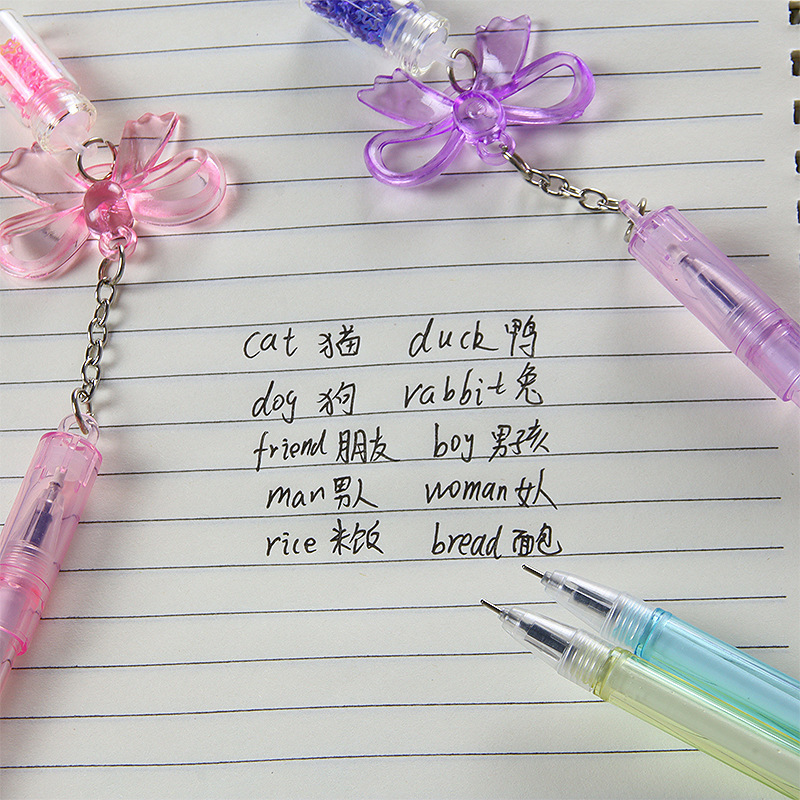 cat 猫 duck 鸭
dog 狗 rabbit 兔
friend 朋友 boy 男孩
man 男人 woman 女人
rice 米饭 bread 面包